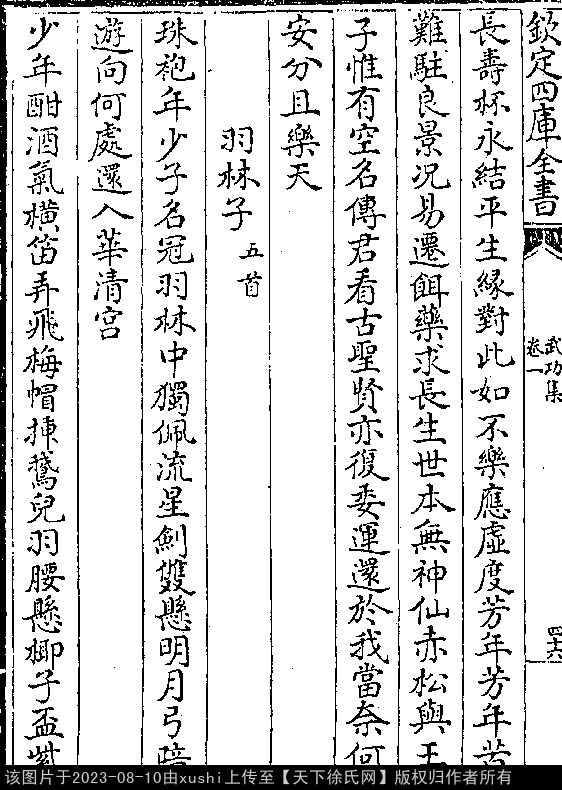 欽定四庫全書
武功集
卷一
四十六
長壽杯永結平生緣對此如不樂應虛度芳年芳年苦
難駐良景况易遷餌藥求長生世本無神仙赤松與王
子惟有空名傳君看古聖賢亦復委運還於我當奈何
安分且樂天
羽林子五首
珠袍年少子名冠羽林中獨佩流星劍雙懸明月弓陪
遊向何處還入華清宫
少年酣酒氣橫笛弄飛梅帽揀鵞兒羽腰懸椰子盃紫
该图片于2023-08-10由xushi上传至【天下徐氏网】版权归作者所有